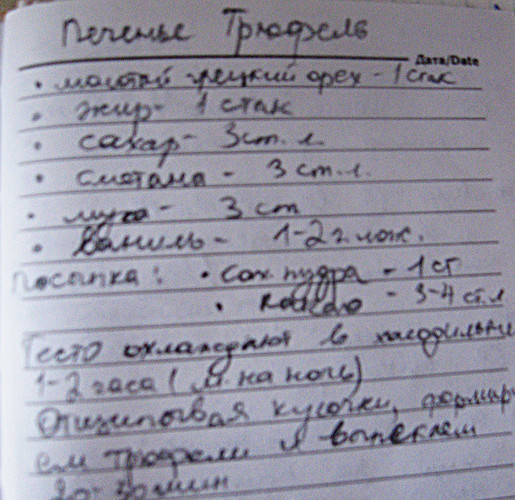 Печенье Трюфель
Дата/Date
• молотый грецкий орех - 1 стак
• жир - 1 стак
• сахар - 3 ст. л.
• сметана - 3 ст. л.
• мука - 3 ст
• ваниль - 1-2 г. лож.
Посыпка: • сах. пудра - 1 ст
• какао - 3-4 ст. л
Тесто охлаждают в холодильни
1-2 часа (м. на ночь)
Отщипывая кусочки, формиру
ем трюфели и выпекаем
20-30 мин